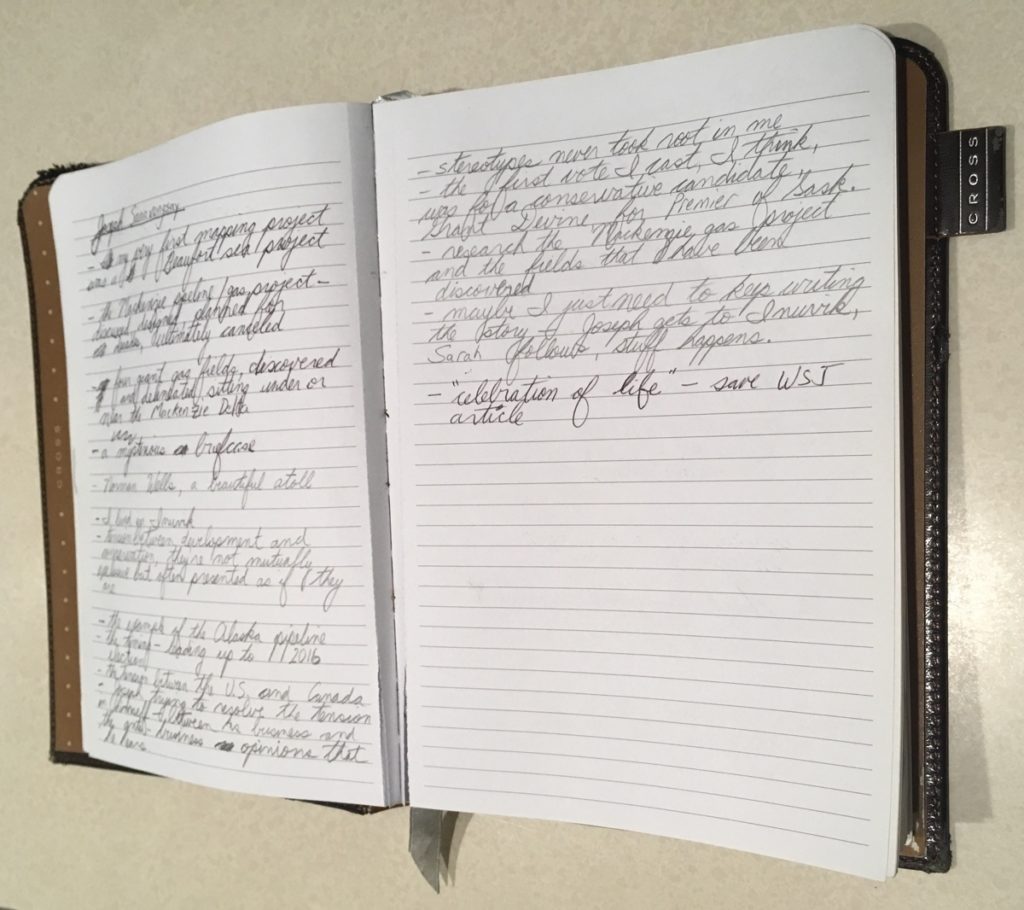 Joseph
- my very first mapping project
was a Beaufort sea project
- the Mackenzie pipeline/gas project -
discussed, designed, planned for
ultimately canceled
- four giant gas fields, discovered
and delineated, sitting under or
near the Mackenzie Delta
- a mysterious briefcase
- Norman Wells, a beautiful atoll
- I Inuvik
- tension between development and
conservation, they're not mutually
exclusive but often presented as if they
are
- the example of the Alaska pipeline
- the timing - leading up to 2016
election
- the tension between the U.S. and Canada
- Joseph trying to resolve the tension
in himself between his business and
the anti-business opinions that
he hears
- stereotypes never took root in me
- the first vote I cast, I think,
was for a conservative candidate,
Grant Devine for Premier of Sask.
- research the Mackenzie gas project
and the fields that have been
discovered
- maybe I just need to keep writing
the story - Joseph gets to Inuvik,
Sarah follows, stuff happens.
- "celebration of life" - save WSJ
article
CROSS
CROSS